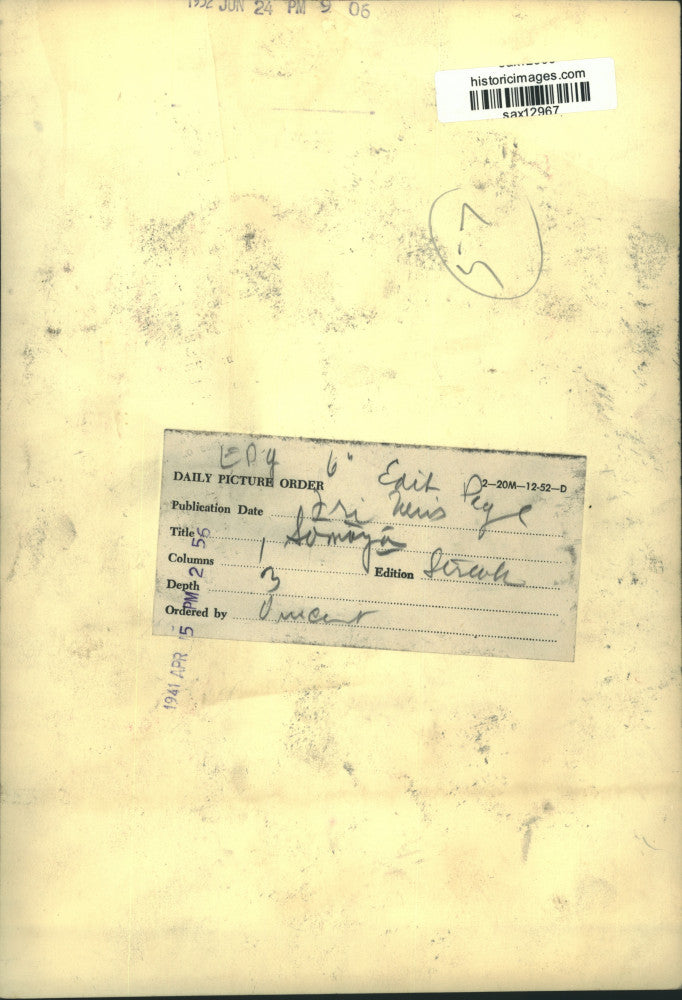 1952 JUN 24 PM 9 06
historicimages.com
sax12967
57
EDY 6" Edit Page
DAILY PICTURE ORDER
2—20M—12-52—D
Publication Date Fri News
Title Somoza
Columns 1
Edition Streak
Depth 3
Ordered by Vincent
1941 APR 15 PM 2 56